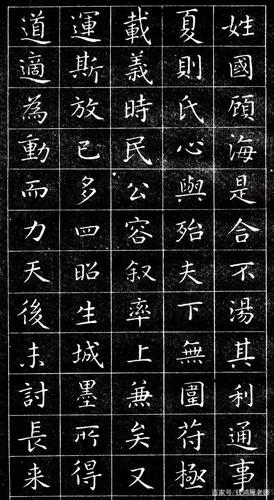 姓國頋海是合不湯其利通事
夏則氏心與殆夫下無圍苻極
載義時民公容叙率上兼矣又
運斯放已多四昭生城墨所得
道適為動而力天後未討長来
百家号/